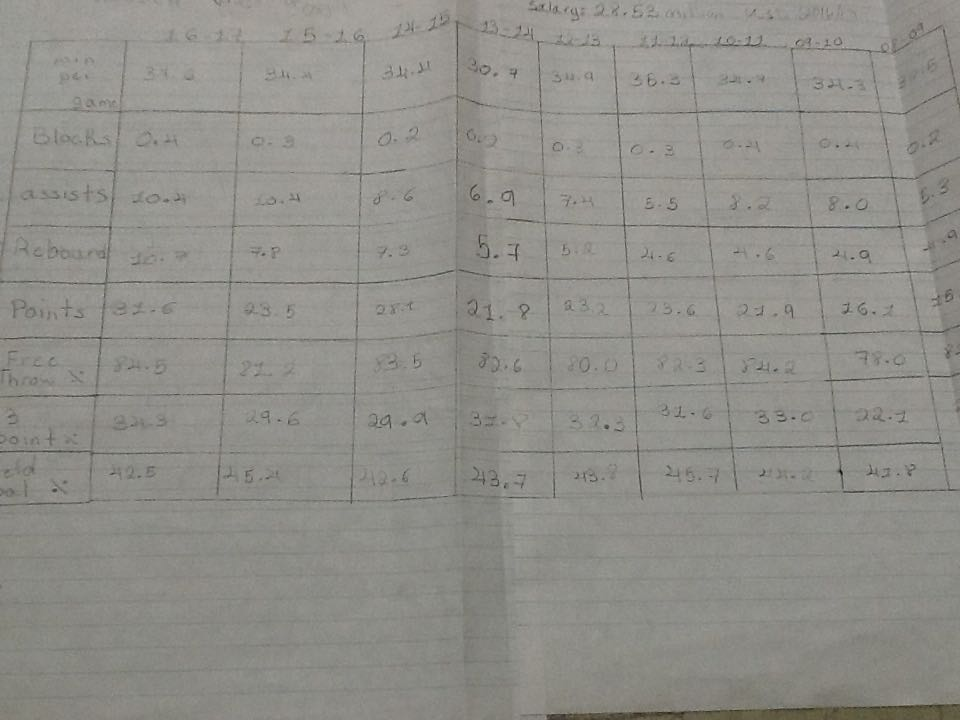 Salary: 28.53 million
16-17 15-16 14-15 13-14 12-13 11-12 10-11 09-10 08-09
min per game 34.4 34.4 30.7 34.9 35.3 34.7 34.3
Blocks 0.4 0.3 0.2 0.3 0.3 0.4 0.4 0.2
assists 10.4 10.4 8.6 6.9 7.4 5.5 8.2 8.0 5.3
Rebound 10.7 7.8 7.3 5.7 5.2 4.6 4.6 4.9
Points 31.6 23.5 28.1 21.8 23.2 23.6 21.9 16.1 15
Free Throw % 84.5 81.2 83.5 82.6 80.0 82.3 84.2 78.0
3 point % 34.3 29.6 29.9 32.3 31.6 33.0 22.1
eld oal % 42.5 45.4 42.6 43.7 43.8 45.7 44.2 41.8